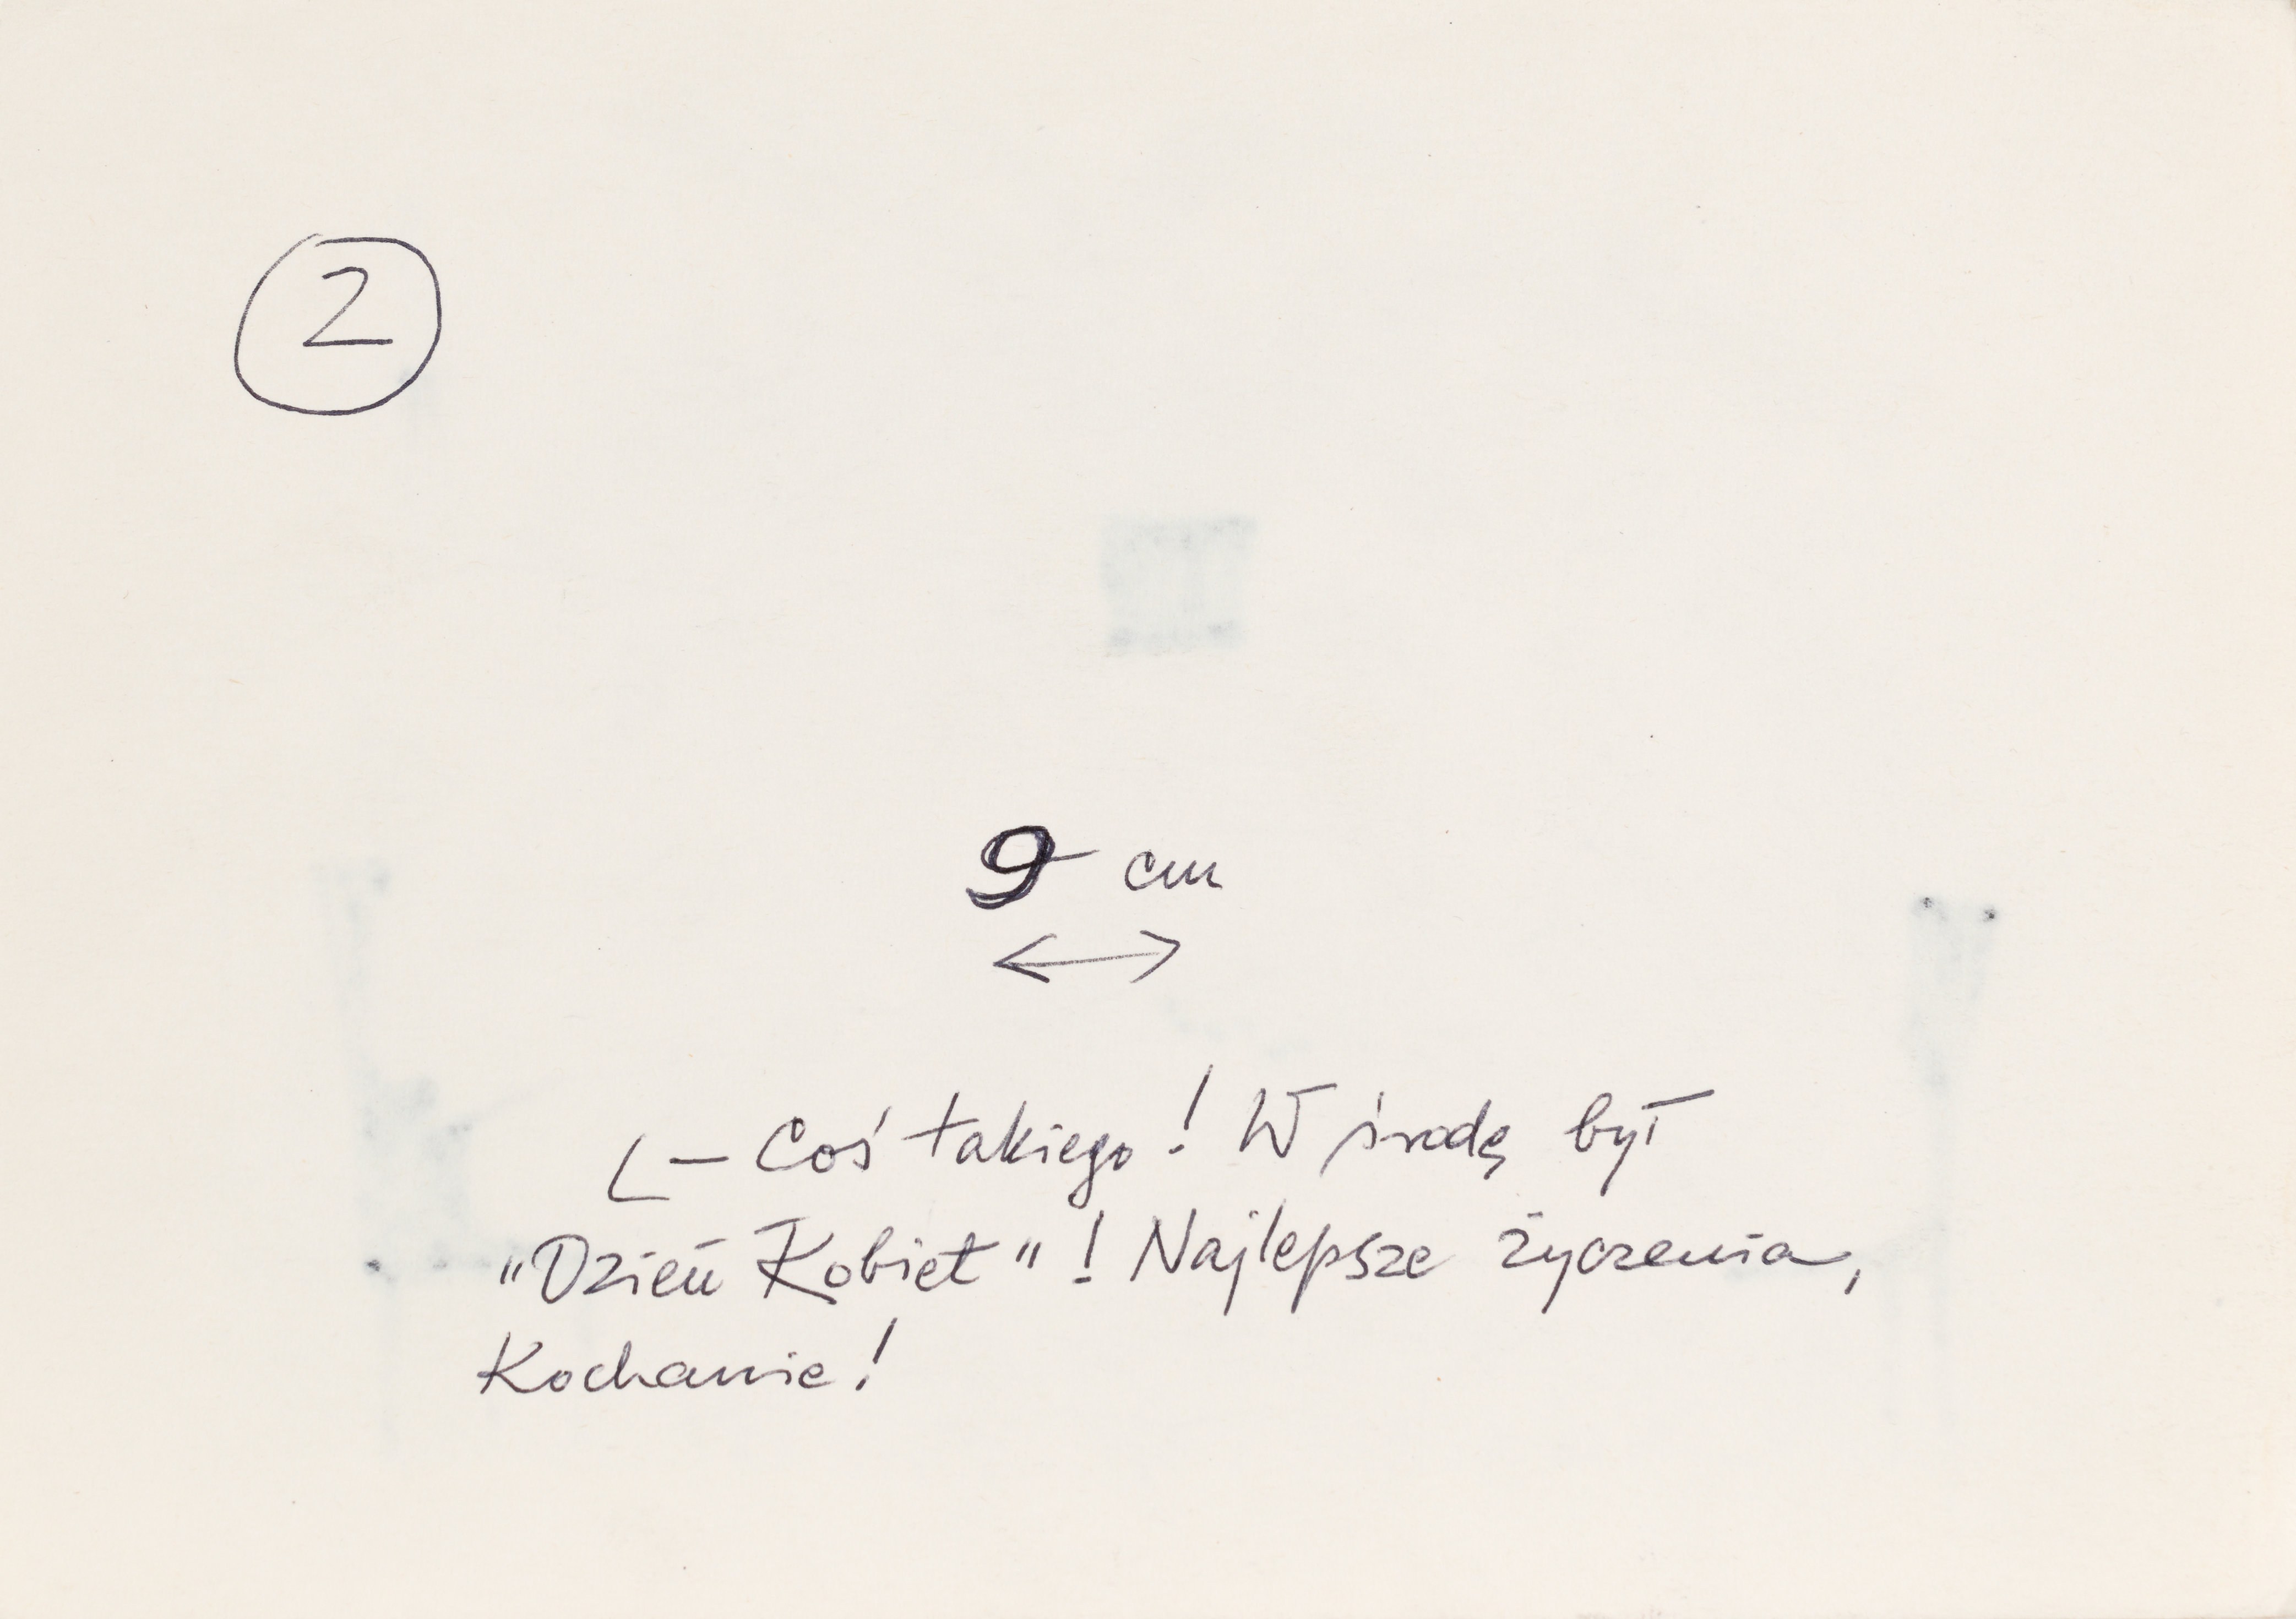 2
9 cm
←→
⌊— Coś takiego! W środę był
„Dzień Kobiet"! Najlepsze życzenia,
Kochanie!